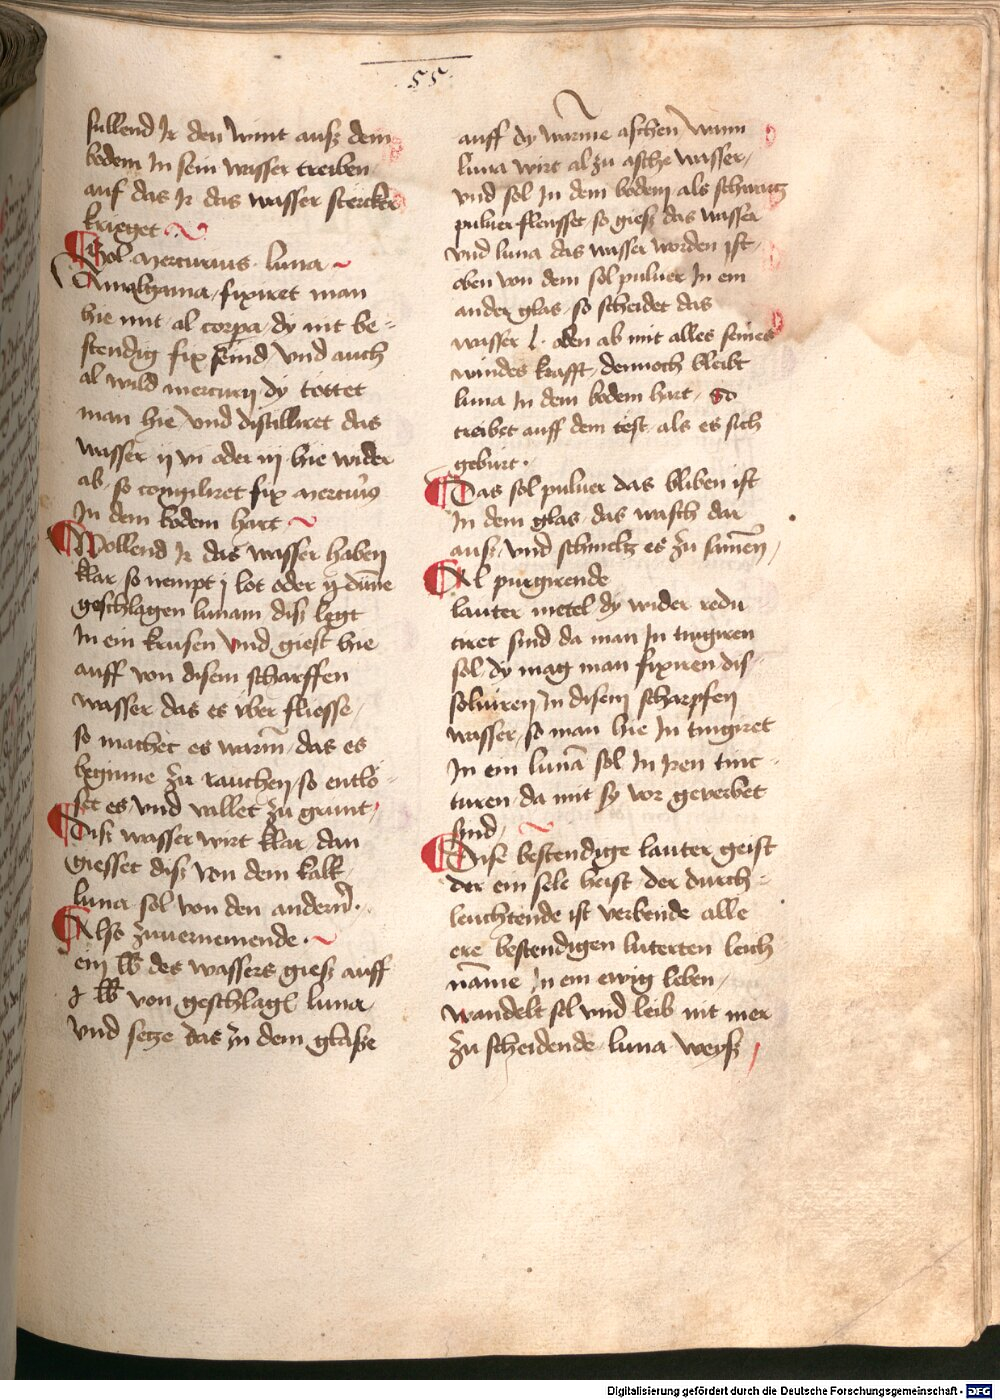 55
sullend Ir den wint ausz dem
bodem In sein wasser treiben
auf das Ir das wasser stercker
krieget
Sol mercurius luna
Amalgama fixiret man
hie mit al corpa dy nit be-
stendig fix seind vnd auch
al wild mercurij dy tottet
man hie vnd distilliret das
wasser ij vn oder iij hie wider
ab so congiliret fix mercurius
In dem bodem hart
Wollend Ir das wasser haben
klar so nempt j lot oder ij dunne
geschlagen lunam disz legt
In ein krusen vnd giest hie
auff von disem scharffen
wasser das es vber fliesse
so machet es warm das es
begynne zu rauchen so entlo-
set es vnd vallet zu grunt
Disz wasser wirt klar dan
giesset disz von dem kalk
luna sol von den andern
Also zuuernemende
ein lb des wassers giesz auff
lb von geschlagen luna
vnd setze das in dem glasze
auff dy warme aschen wann
luna wirt al zu asche wasser
vnd sol In dem bodem als schwartz
puluer fleusset so giesz das wasser
vnd luna das wasser worden ist
oben von dem sol puluer In ein
ander glas so scheidet das
wasser l. oben ab mit alles seines
windes krafft dennoch bleibt
luna In dem bodem hart So
treibet auff dem test als es sich
geburt
Das sol puluer das bliben ist
In dem glas das wasch dar
ausz vnd schmeltz es zu samen
Al purgirende
lauter metel dy wider redu
ciret sind da man In tingiren
sol dy mag man fixiren dis-
soluiren In disem scharpfen
wasser so man hie In tingiret
In ein luna sol In Iren tinc-
turen da mit sy vor geverbet
sind
Dise bestendige lauter geist
der ein sele heist der durch-
leuchtende ist verbende alle
ere bestendigen luterten leich-
name In ein ewig leben
wandelt sol vnd leib nit mer
zu scheidende luna weysz
Digitalisierung gefördert durch die Deutsche Forschungsgemeinschaft - DFG